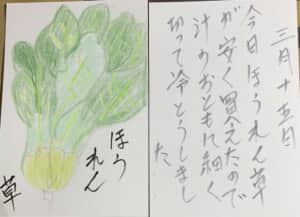 ほう
れん
草
三月十五日
今日ほうれん草
が安く買えたので
汁のおともに細く
切って冷とうしまし
た